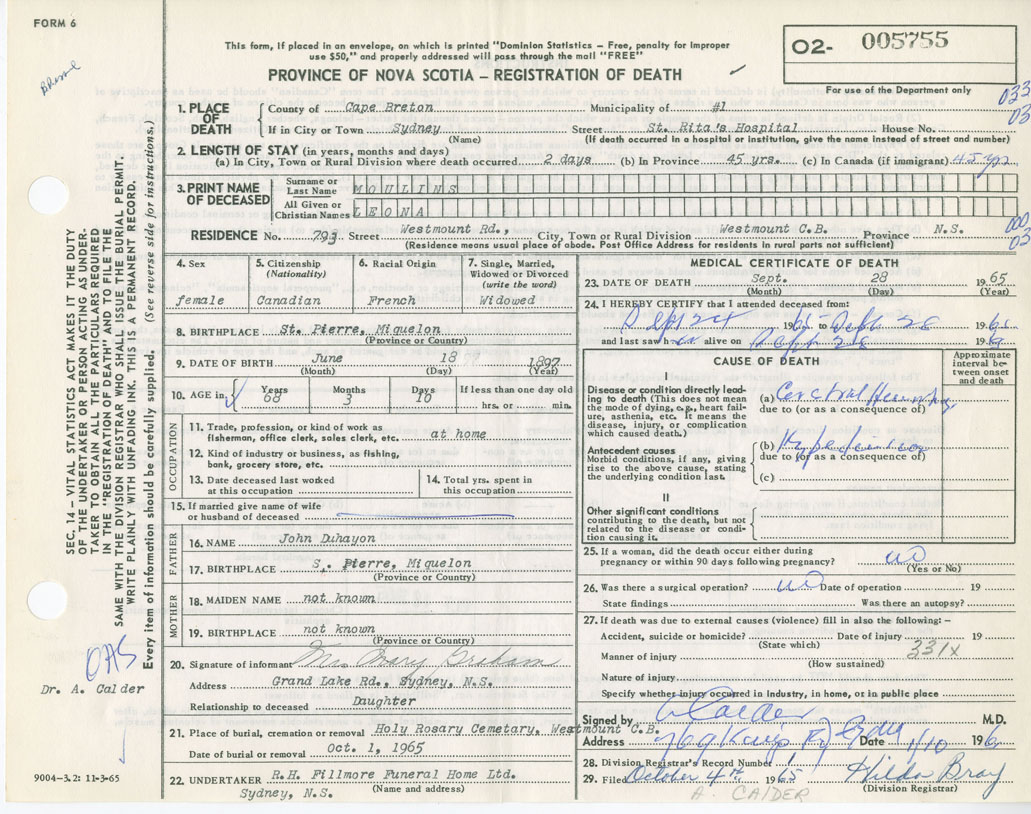 FORM 6
This form, if placed in an envelope, on which is printed "Dominion Statistics – Free, penalty for improper
use $50," and properly addressed will pass through the mail "FREE"
PROVINCE OF NOVA SCOTIA – REGISTRATION OF DEATH
02- 005755
For use of the Department only
1. PLACE OF DEATH
County of Cape Breton Municipality of #1
If in City or Town Sydney Street St. Rita's Hospital House No.
(Name) (If death occurred in a hospital or institution, give the name instead of street and number)
2. LENGTH OF STAY (in years, months and days)
(a) In City, Town or Rural Division where death occurred 2 days (b) In Province 45 yrs. (c) In Canada (if immigrant) 45 yr
3. PRINT NAME OF DECEASED
Surname or Last Name MOULINS
All Given or Christian Names LEONA
RESIDENCE No. 793 Street Westmount Rd., City, Town or Rural Division Westmount C.B. Province N.S.
(Residence means usual place of abode. Post Office Address for residents in rural parts not sufficient)
033
03
000
03
SEC. 14 – VITAL STATISTICS ACT MAKES IT THE DUTY
OF THE UNDERTAKER OR PERSON ACTING AS UNDER-
TAKER TO OBTAIN ALL THE PARTICULARS REQUIRED
IN THE "REGISTRATION OF DEATH" AND TO FILE THE
SAME WITH THE DIVISION REGISTRAR WHO SHALL ISSUE THE BURIAL PERMIT.
WRITE PLAINLY WITH UNFADING INK. THIS IS A PERMANENT RECORD.
Every item of information should be carefully supplied. (See reverse side for instructions.)
4. Sex
female
5. Citizenship
(Nationality)
Canadian
6. Racial Origin
French
7. Single, Married,
Widowed or Divorced
(write the word)
Widowed
8. BIRTHPLACE St. Pierre, Miquelon
(Province or Country)
9. DATE OF BIRTH June 18 1897
(Month) (Day) (Year)
10. AGE in Years 68 Months 3 Days 10 If less than one day old
hrs. or min.
OCCUPATION
11. Trade, profession, or kind of work as
fisherman, office clerk, sales clerk, etc. at home
12. Kind of industry or business, as fishing,
bank, grocery store, etc.
13. Date deceased last worked
at this occupation
14. Total yrs. spent in
this occupation
15. If married give name of wife
or husband of deceased
FATHER
16. NAME John Duhayon
17. BIRTHPLACE S,. Pierre, Miquelon
(Province or Country)
MOTHER
18. MAIDEN NAME not known
19. BIRTHPLACE not known
(Province or Country)
20. Signature of informant Mrs Mary
Address Grand Lake Rd., Sydney, N.S.
Relationship to deceased Daughter
21. Place of burial, cremation or removal Holy Rosary Cemetary, Westmount C.B.
Date of burial or removal Oct. 1, 1965
22. UNDERTAKER R.H. Fillmore Funeral Home Ltd.
Sydney, N.S. (Name and address)
OAS
Dr. A. Calder
9004-3.2: 11-3-65
MEDICAL CERTIFICATE OF DEATH
23. DATE OF DEATH Sept. 28 1965
(Month) (Day) (Year)
24. I HEREBY CERTIFY that I attended deceased from:
Sept 24 1965 to Sept 28 196
and last saw h alive on Sept 28 196
CAUSE OF DEATH
Approximate
interval be-
tween onset
and death
I
Disease or condition directly lead-
ing to death (This does not mean
the mode of dying, e.g., heart fail-
ure, asthenia, etc. It means the
disease, injury, or complication
which caused death.)
(a) Cerebral
due to (or as a consequence of)
Antecedent causes
Morbid conditions, if any, giving
rise to the above cause, stating
the underlying condition last.
(b) Hypertension
due to (or as a consequence of)
(c)
II
Other significant conditions
contributing to the death, but not
related to the disease or condi-
tion causing it.
25. If a woman, did the death occur either during
pregnancy or within 90 days following pregnancy? no
(Yes or No)
26. Was there a surgical operation? no Date of operation 19
State findings Was there an autopsy?
27. If death was due to external causes (violence) fill in also the following: –
Accident, suicide or homicide? Date of injury 19
(State which) 331X
Manner of injury
(How sustained)
Nature of injury
Specify whether injury occurred in industry, in home, or in public place
Signed by A Calder M.D.
Address 769 Kings Rd Sydney Date 1/10 196
28. Division Registrar's Record Number 1
29. Filed October 4th 1965 Hilda Bray
(Division Registrar)
A. CALDER